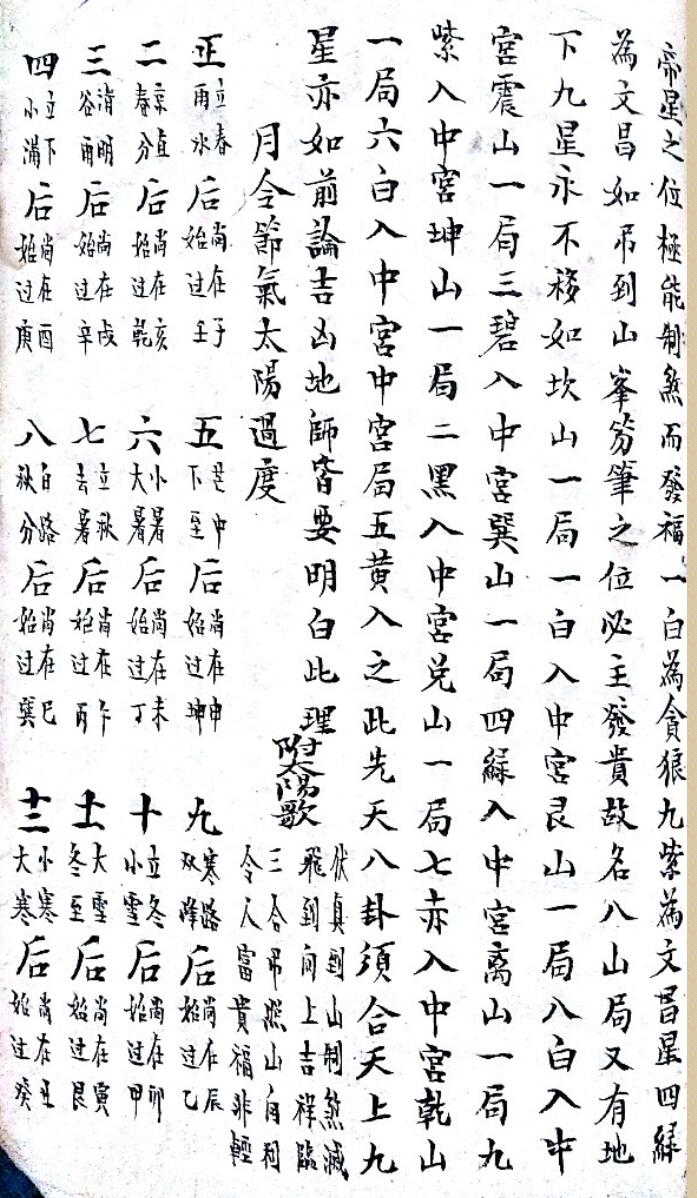 帝星之位極能制煞而發福一白為貪狼九紫為文昌星四綠
為文昌如吊到山峯笏筆之位必主發貴故名八山局又有地
下九星永不移如坎山一局一白入中宮艮山一局八白入中
宮震山一局三碧入中宮巽山一局四綠入中宮离山一局九
紫入中宮坤山一局二黑入中宮兌山一局七赤入中宮乾山
一局六白入中宮中宮局五黃入之此先天八卦須合天上九
星亦如前論吉凶地師皆要明白此理
附太陽歌
伏真到山制煞滅
飛到向上吉祥臨
三合吊照山自利
令人富貴福非輕
月令節氣太陽過度
正 立春雨水后 尚在子始过壬
二 京直春分后 尚在亥始过乾
三 清明谷雨后 尚在戌始过辛
四 立下小滿后 尚在酉始过庚
五 芒中下至后 尚在申始过坤
六 小暑大暑后 尚在未始过丁
七 立秋去暑后 尚在午始过丙
八 白路秋分后 尚在巳始过巽
九 寒路双降后 尚在辰始过乙
十 立冬小雪后 尚在卯始过甲
十一 大雪冬至后 尚在寅始过艮
十二 小寒大寒后 尚在丑始过癸